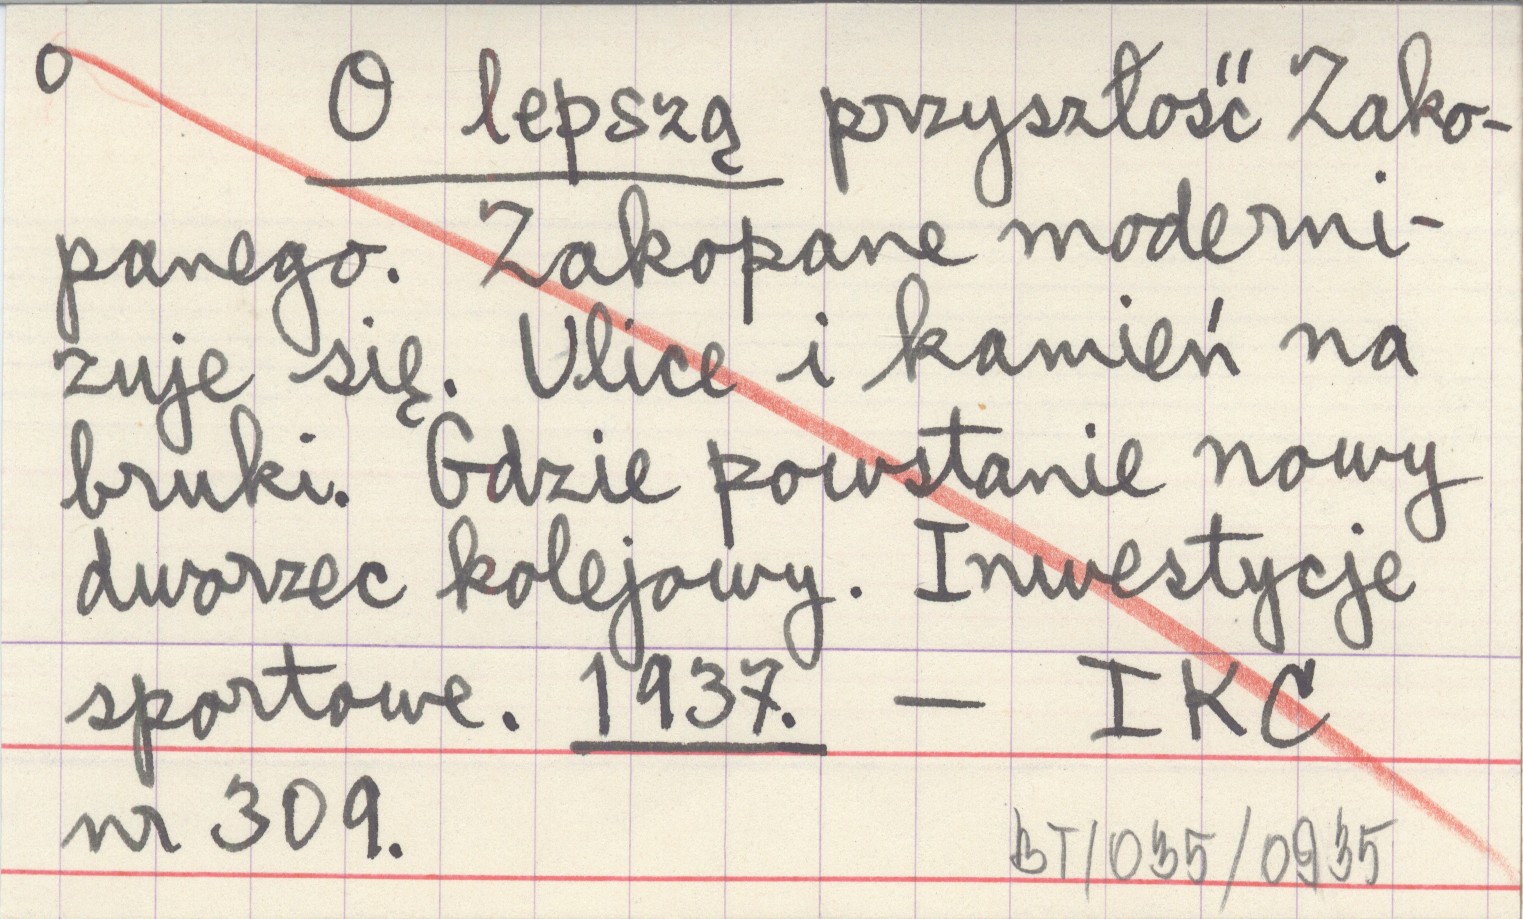 O O lepszą przyszłość Zako-
panego. Zakopane moderni-
zuje się. Ulice i kamień na
bruki. Gdzie powstanie nowy
dworzec kolejowy. Inwestycje
sportowe. 1937. — IKC
nr 309.
BT/035/0935